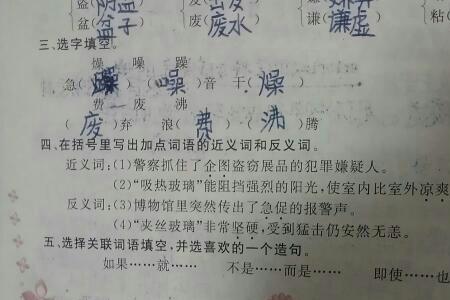 盗(阴盔 废(出发 嫌(嫌弃
盆(盆子 废(废水 谦(谦虚 粘(
三、选字填空。
燥 噪 躁
急(躁) (噪)音 干(燥)
费 废 沸
(废)弃 浪(费) (沸)腾
四、在括号里写出加点词语的近义词和反义词。
近义词:(1)警察抓住了企图盗窃展品的犯罪嫌疑人。
(2)“吸热玻璃”能阻挡强烈的阳光,使室内比室外凉爽
反义词:(3)博物馆里突然传出了急促的报警声。
(4)“夹丝玻璃”非常坚硬,受到猛击仍安然无恙。
五、选择关联词语填空,并选喜欢的一个造句。
如果……就…… 不是……而是…… 即使……也